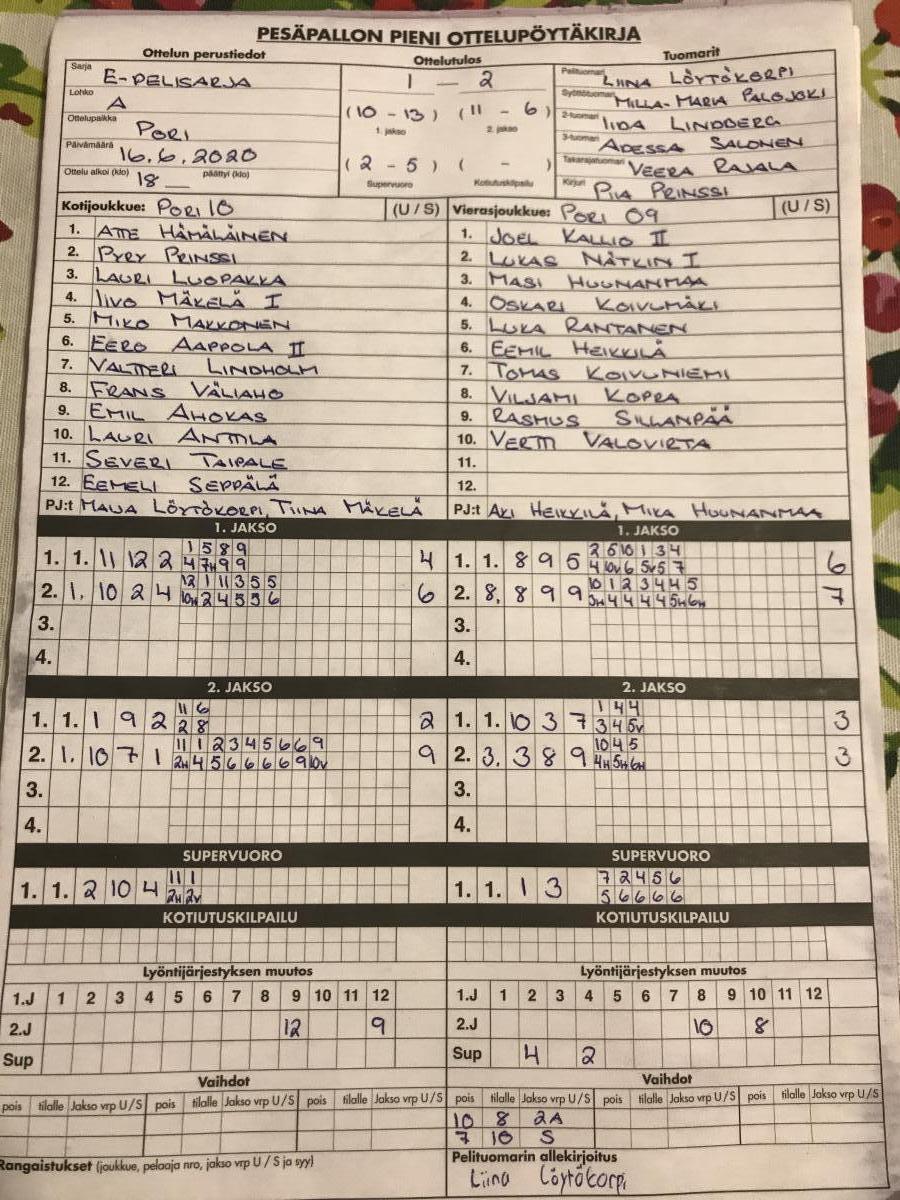 PESÄPALLON PIENI OTTELUPÖYTÄKIRJA
Ottelun perustiedot Ottelutulos Tuomarit
Sarja E-PELISARJA
Lohko A
Ottelupaikka PORI
Päivämäärä 16.6.2020
Ottelu alkoi (klo) 18 päättyi (klo)
1 — 2
(10 - 13) (11 - 6)
1. jakso 2. jakso
(2 - 5) ( - )
Supervuoro Kotiutuskilpailu
Pelituomari LIINA LÖYTÖKORPI
Syöttötuomari MILLA-MARIA PALOJOKI
2-tuomari IIDA LINDBERG
3-tuomari ADESSA SALONEN
Takarajatuomari VEERA RAJALA
Kirjuri PIIA PRINSSI
Kotijoukkue: PORI 10 (U / S) Vierasjoukkue: PORI 09 (U / S)
1. ATTE HÄMÄLÄINEN 1. JOEL KALLIO II
2. PYRY PRINSSI 2. LUKAS NÄTKIN I
3. LAURI LUOPAKKA 3. MASI HUUNANMAA
4. IIVO MÄKELÄ I 4. OSKARI KOIVUMÄKI
5. MIKO MAKKONEN 5. LUKA RANTANEN
6. EERO AAPPOLA II 6. EEMIL HEIKKILÄ
7. VALTTERI LINDHOLM 7. TOMAS KOIVUNIEMI
8. FRANS VÄLIAHO 8. VILJAMI KOPRA
9. EMIL AHOKAS 9. RASMUS SILLANPÄÄ
10. LAURI ANTTILA 10. VERTTI VALOVIRTA
11. SEVERI TAIPALE 11.
12. EEMELI SEPPÄLÄ 12.
PJ:t MAIJA LÖYTÖKORPI, TIINA MÄKELÄ PJ:t AKI HEIKKILÄ, MIKA HUUNANMAA
1. JAKSO 1. JAKSO
1 5 8 9 2 5 10 1 3 4
1. 1. 11 12 2 4 7H 9 9 4 1. 1. 8 9 5 4 10V 6 5V 5 7 6
12 1 11 3 5 5 10 1 2 3 4 4 5
2. 1. 10 2 4 10H 2 4 5 5 6 6 2. 8. 8 9 9 3H 4 4 4 4 5H 6H 7
3. 3.
4. 4.
2. JAKSO 2. JAKSO
11 6 1 4 4
1. 1. 1 9 2 2 8 2 1. 1. 10 3 7 3 4 5V 3
11 1 2 3 4 5 6 6 9 10 4 5
2. 1. 10 7 1 2H 4 5 6 6 6 6 9 10V 9 2. 3. 3 8 9 4H 5H 6H 3
3. 3.
4. 4.
SUPERVUORO SUPERVUORO
11 1 7 2 4 5 6
1. 1. 2 10 4 2H 2V 1. 1. 1 3 5 6 6 6 6
KOTIUTUSKILPAILU KOTIUTUSKILPAILU
Lyöntijärjestyksen muutos Lyöntijärjestyksen muutos
1.J 1 2 3 4 5 6 7 8 9 10 11 12 1.J 1 2 3 4 5 6 7 8 9 10 11 12
2.J 12 9 2.J 10 8
Sup Sup 4 2
Vaihdot Vaihdot
pois tilalle Jakso vrp U / S pois tilalle Jakso vrp U / S pois tilalle Jakso vrp U / S pois tilalle Jakso vrp U / S pois tilalle Jakso vrp U / S pois tilalle Jakso vrp U / S
10 8 2A
7 10 S
Rangaistukset (joukkue, pelaaja nro, jakso vrp U / S ja syy) Pelituomarin allekirjoitus
Liina Löytökorpi